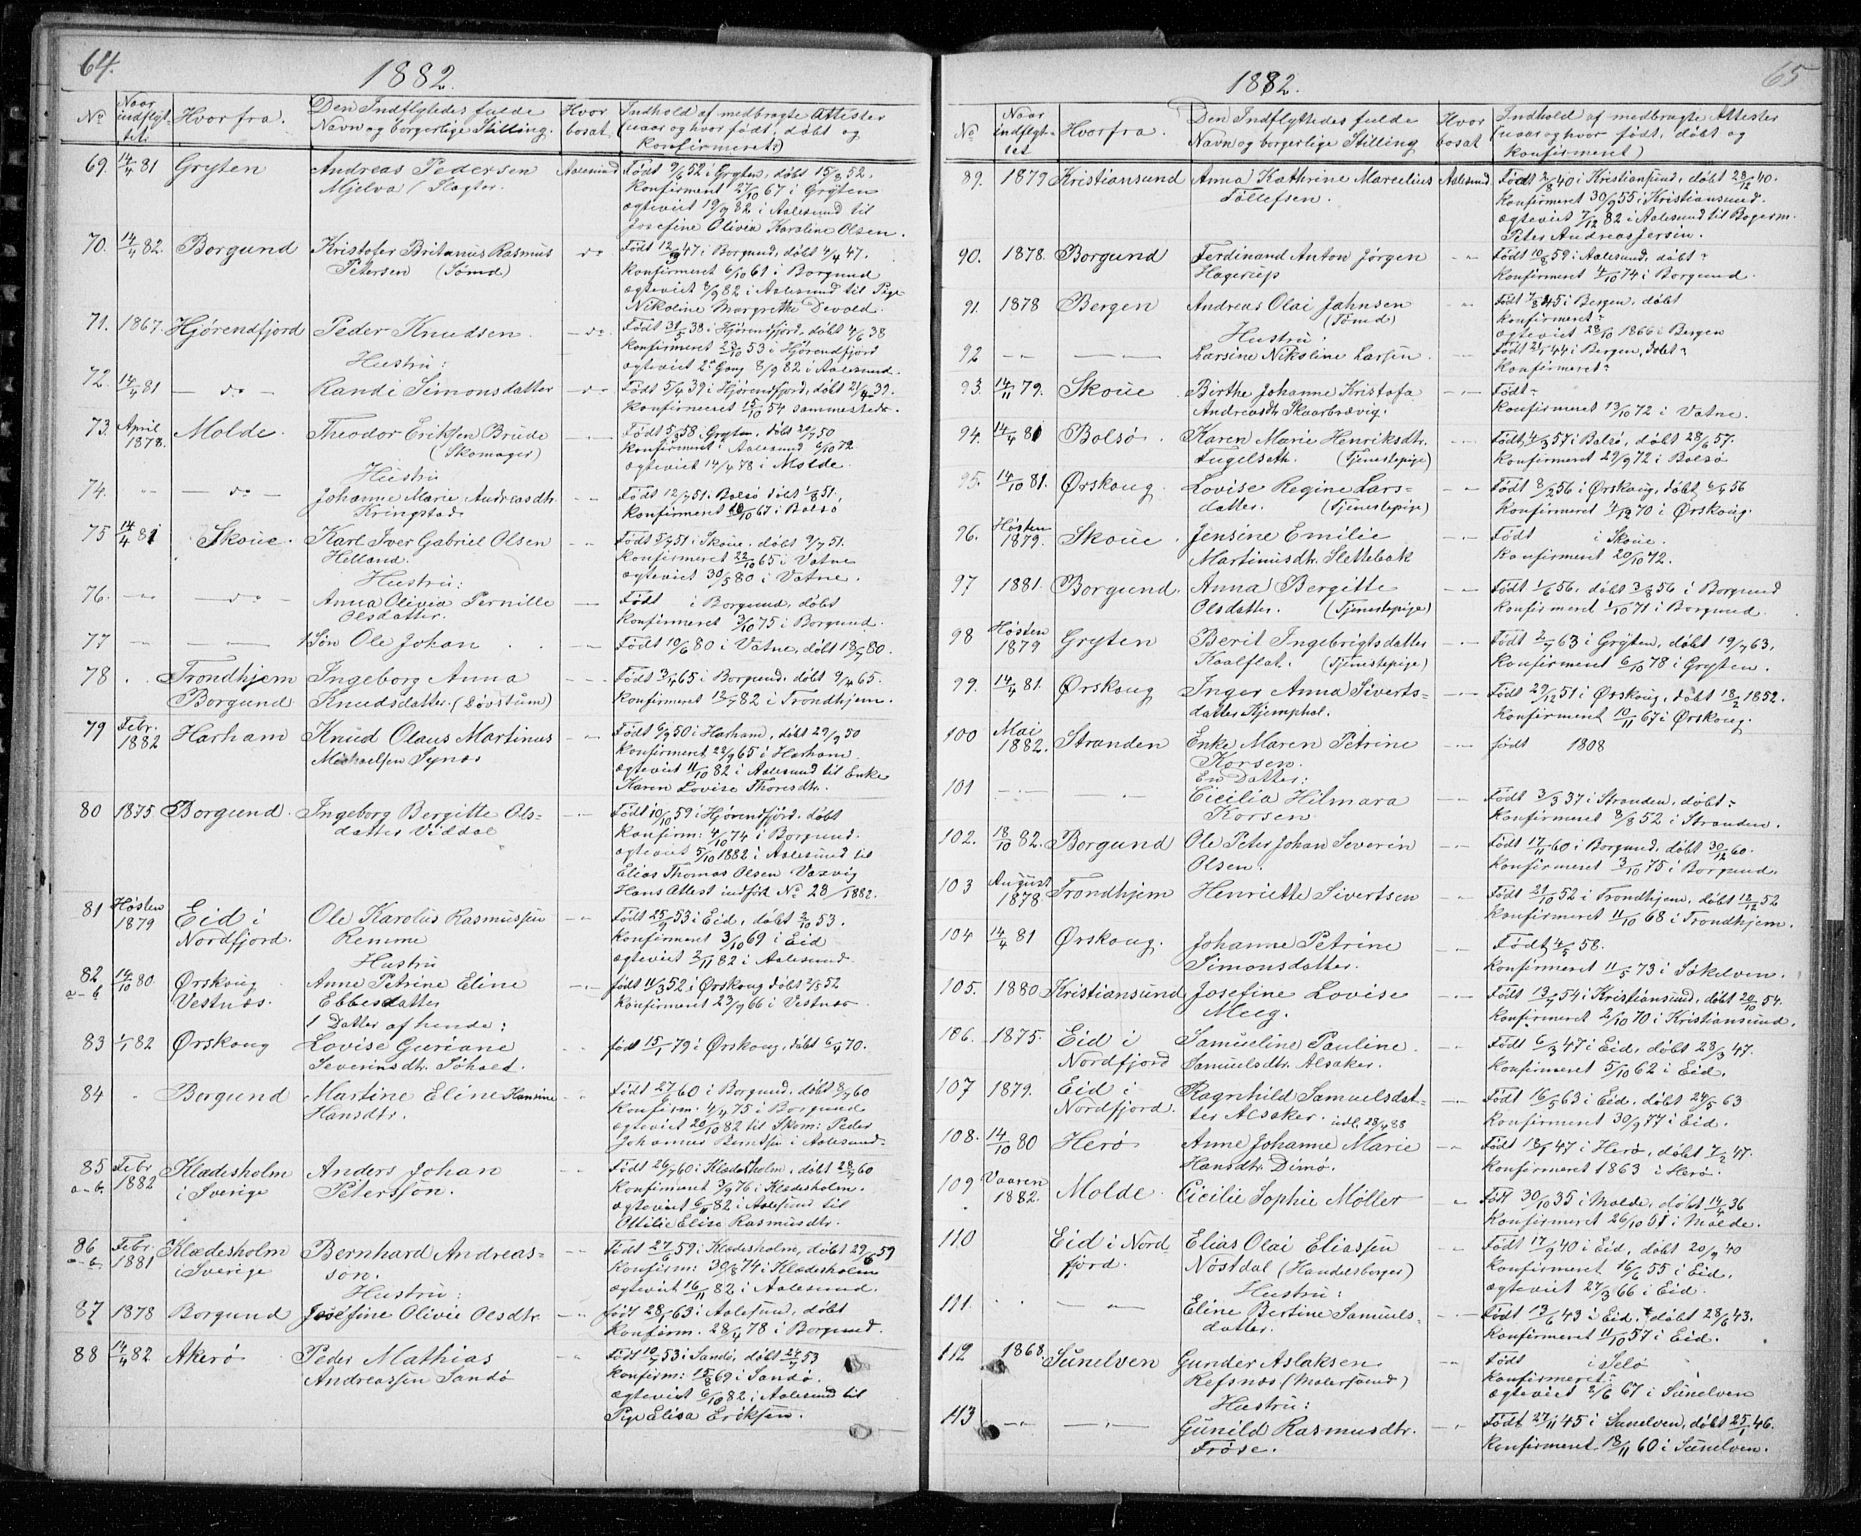 64.
1882.
No
Naar indflyt- tet:
Hvor fra.
Den Indflyttedes fulde Navn og borgerlige Stilling.
Hvor bosat.
Indhold af medbragte Attester (naar og hvor født, døbt og konfirmeret:)
69. 14/4 81 Gryten Andreas Pedersen Aalesund Født 9/6 52 i Gryten, døbt 15/8 52.
Mjelva / Slagter. Konfirmeret 27/10 67 i Gryten
ægteviet 19/9 82 i Aalesund til
Josefine Olivia Karoline Olsen.
70. 14/4 82. Borgund Kristofer Britanus Rasmus do Født 12/3 47 i Borgund, døbt 4/4 47.
Petersen (Sømd) Konfirmeret 6/10 61 i Borgund
ægteviet 3/9 82 i Aalesund til Pige
Nikoline Margrethe Devold.
71. 1867. Hjørendfjord Peder Knudsen. do Født 31/5 38 i Hjørendfjord, døbt 4/6 38
Konfirmeret 23/10 53 i Hjørendfjord
Hustru: ægteviet 2den Gang 8/9 82 i Aalesund.
72. 14/4 81 do Randi Simonsdatter do Født 5/4 39 i Hjørendfjord, døbt 21/4 39.
Konfirmeret 15/10 54 sammesteds.
73. April 1878. Molde. Theodor Eriksen Brude Født 5/3 58 Gryten, døbt 20/7 50
(Skomager) Konfirmeret Aalesund 6/10 72.
ægteviet 14/4 78 i Molde.
Hustru
74. do Johanne Marie Andreasdtr. Født 12/7 51. Bolsø døbt 1/8 51,
Kringstad. Konfirmeret 20/10 67 i Bolsø
75 14/4 81 Skoue. Karl Iver Gabriel Olsen Født 5/7 51 i Skoue. døbt 9/7 51.
Helland. Konfirmeret 22/10 65 i Vatne
Hustru: ægteviet 30/5 80 i Vatne.
76. do Anna Olivia Pernille Født i Borgund, døbt
Olsdatter. Konfirmeret 3/10 75 i Borgund.
77 1 Søn Ole Johan Født 19/6 80 i Vatne, døbt 18/7 80.
78 Trondhjem Ingeborg Anna Født 3/1 65 i Borgund, døbt 9/4 65.
Borgund Knudsdatter. (Døvstum) Konfirmeret 12/7 82 i Trondhjem.
79 Febr. 1882 Harham Knud Olaus Martinus Født 6/9 50 i Harham, døbt 29/9 50
Michaelsen Synæs Konfirmeret 22/9 65 i Harham
ægteviet 11/10 82 i Aalesund til Enke
Karen Lovise Thoresdtr.
80 1875 Borgund. Ingeborg Bergitte Ols- Født 10/10 59 i Hjørendfjord. døbt
datter Viddal Konfirm: 4/10 74 i Borgund.
ægteviet 5/10 1882 i Aalesund til
Elias Thomas Olsen Vaxvig
Hans Attest indført No 28 / 1882.
81 Høsten 1879 Eid i Ole Karolus Rasmussen Født 25/9 53 i Eid, døbt 2/10 53.
Nordfjord. Remme Konfirmeret 3/10 69 i Eid
Hustru ægteviet 2/11 82 i Aalesund.
82 a-b 14/10 80 Ørskoug Anne Petrine Eline født 11/3 52 i Ørskoug døbt 2/5 52
Vestnæs. Ebbesdatter Konfirmeret 23/9 66 i Vestnæs
1 Datter af hende:
83 1/1 82 Ørskoug Lovise Guriane født 15/1 79 i Ørskoug, døbt 6/4 70.
Severinsdtr. Søholt.
84 Borgund Martine Eline Hansine Født 27/6 60 i Borgund, døbt 8/7 60
Hansdtr. Konfirm. 4/4 75 i Borgund
ægteviet 20/10 82 til Skom: Peder
Johannes Berntsen i Aalesund
85 a-b. Febr 1882 Klædesholm Anders Johan Født 26/7 60 i Klædesholm, døbt 28/7 60
i Sverige Petersson. Konfirmeret 3/9 76 i Klædesholm.
ægteviet 6/11 82 i Aalesund til
Ottilie Elise Rasmusdtr.
86 a-b. Febr. 1881 Klædesholm Bernhard Andreas- Født 27/6 59 i Klædesholm, døbt 29/6 59
i Sverige son. Konfirm: 30/8 74 i Klædesholm
Hustru: ægteviet 16/11 82 i Aalesund.
87 1878 Borgund Josefine Olivie Olsdtr. født 28/1 63 i Aalesund, døbt
Konfirm. 28/4 78 i Borgund.
88 14/4 82 Akerø Peder Mathias Født 10/7 53 i Sandø, døbt 24/7 53
Andreassen Sandø Konfirm: 15/8 69 i Sandø.
ægteviet 6/10 82 i Aalesund til
Pige Elisa Eriksen.
65
1882.
No
Naar indflyt- tet
Hvor fra.
Den Indflyttedes fulde Navn og borgerlige Stilling
Hvor bosat
Indhold af medbragte Attester (naar og hvor født, døbt og Konfirmeret)
89. 1879 Kristiansund Anna Kathrine Marcelius Aalesund Født 2/8 40 i Kristiansund, døbt 28/12 40.
Tollefsen. Konfirmeret 30/9 55 i Kristiansund.
ægteviet 7/12 82 i Aalesund til Bogerm.
Peter Andreas Jersin.
90. 1878. Borgund Ferdinand Anton Jørgen Født 10/8 59 i Aalesund, døbt
Hagerup Konfirmeret 4/10 74 i Borgund.
91. 1878 Bergen Andreas Olai Jahnsen Født 7/8 45 i Bergen, døbt
(Sømd) Konfirmeret
Hustru: ægteviet 28/10 1866 i Bergen
92 Larsine Nikoline Larsen. Født 21/1 44 i Bergen, døbt
Konfirmeret
93. 14/11 79. Skoue Birthe Johanne Kristofa Født
Andreasdtr. Skaarbrævig. Konfirmeret 13/10 72 i Vatne.
94. 14/4 81 Bolsø. Karen Marie Henriksdtr. Født 4/3 57 i Bolsø, døbt 28/6 57.
Fugelseth. (Tjenestepige) Konfirmeret 29/9 72 i Bolsø
95. 14/10 81. Ørskoug. Lovise Regine Lars- Født 8/2 56 i Ørskoug, døbt 6/4 56
datter. (Tjenestepige) Konfirmeret 2/10 70 i Ørskoug.
96. Høsten 1879. Skoue. Jensine Emilie Født i Skoue.
Martinusdtr. Slettebak Konfirmeret 20/10 72.
97 1881. Borgund. Anna Bergitte Født 1/6 56, døbt 3/8 56 i Borgund
Olsdatter. (Tjenestepige) Konfirmeret 1/10 71 i Borgund.
98 Høsten 1879 Gryten Berit Ingebrigtsdatter Født 2/7 63 i Gryten, døbt 19/7 63,
Kaalflat. (Tjenestepige) Konfirmeret 6/10 78 i Gryten.
99. 14/4 81. Ørskoug Inger Anna Siverts- Født 29/12 51 i Ørskoug, døbt 18/2 1852.
datter Kjemphol. Konfirmeret 10/11 67 i Ørskoug.
100 Mai 1882. Stranden Enke Maren Petrine født 1808
Korsen.
En Datter:
101 Cicilia Hilmara Født 3/3 37 i Stranden, døbt
Korsen. Konfirmeret 8/8 52 i Stranden.
102. 18/10 82. Borgund Ole Peter Johan Severin Født 17/11 60 i Borgund, døbt 30/12 60.
Olsen. Konfirmeret 3/10 75 i Borgund.
103 August 1878 Trondhjem Henriette Sivertsen Født 21/10 52 i Trondhjem, døbt 12/12 52
Konfirmeret 11/10 68 i Trondhjem.
104 14/4 81 Ørskoug. Johanne Petrine Født 4/5 58.
Simonsdatter. Konfirmeret 11/5 73 i Søkelven.
105. 1880. Kristiansund Josefine Lovise Født 13/7 54 i Kristiansund, døbt 20/10 54.
Meeg. Konfirmeret 2/10 70 i Kristiansund.
106. 1875. Eid i Samueline Pauline Født 6/3 47 i Eid, døbt 28/3 47.
Nordfjord Samuelsdtr. Alsaker. Konfirmeret 5/10 62 i Eid.
107 1879. Eid i Ragnhild Samuelsdat- Født 16/5 63 i Eid, døbt 24/5 63
Nordfjord. ter Alsaker. udl. 28/4 88 Konfirmeret 30/9 77 i Eid.
108. 14/10 80 Herø Anne Johanne Marie Født 18/1 47 i Herø, døbt 7/2 47.
Hansdtr. Dimø. Konfirmeret 1863 i Herø.
109. Vaaren 1882. Molde. Cicilie Sophie Møller Født 30/10 35 i Molde, døbt 14/4 36
Konfirmeret 26/10 51 i Molde.
110 Eid i Nord Elias Olai Eliassen Født 17/9 40 i Eid, døbt 20/9 40
fjord. Nøstdal (Handelsborger) Konfirmeret 16/6 55 i Eid.
Hustru: ægteviet 27/3 66 i Eid.
111. Eline Bertine Samuels- Født 13/6 43 i Eid. døbt 28/6 43.
datter. Konfirmeret 11/10 57 i Eid.
112 1868. Sunelven Gunder Aslaksen Født i Selø
Refsnæs (Malersvend) Konfirmeret
Hustru: ægteviet 2/6 67 i Sunelven
113 Gunild Rasmusdtr. Født 27/11 45 i Sunelven, døbt 25/1 46.
Frøse. Konfirmeret 18/11 60 i Sunelven.